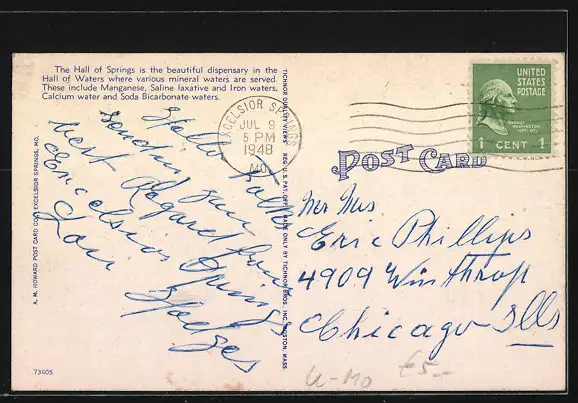 The Hall of Springs is the beautiful dispensary in the
Hall of Waters where various mineral waters are served.
These include Manganese, Saline laxative and Iron waters,
Calcium water and Soda Bicarbonate waters.
Hello Folks
Sending you
best Regard from
Excelsior Springs
A. M. HOWARD POST CARD CO., EXCELSIOR SPRINGS, MO.
73605
TICHNOR QUALITY VIEWS REG. U. S. PAT. OFF. MADE ONLY BY TICHNOR BROS. INC. BOSTON, MASS.
EXCELSIOR SPRINGS
JUL 9
5 PM
1948
MO.
UNITED
STATES
POSTAGE
GEORGE
WASHINGTON
1 CENT 1
POST CARD
Mr Mrs
Eric Phillips
4909 Winthrop
Chicago Ills
U-MO €5-